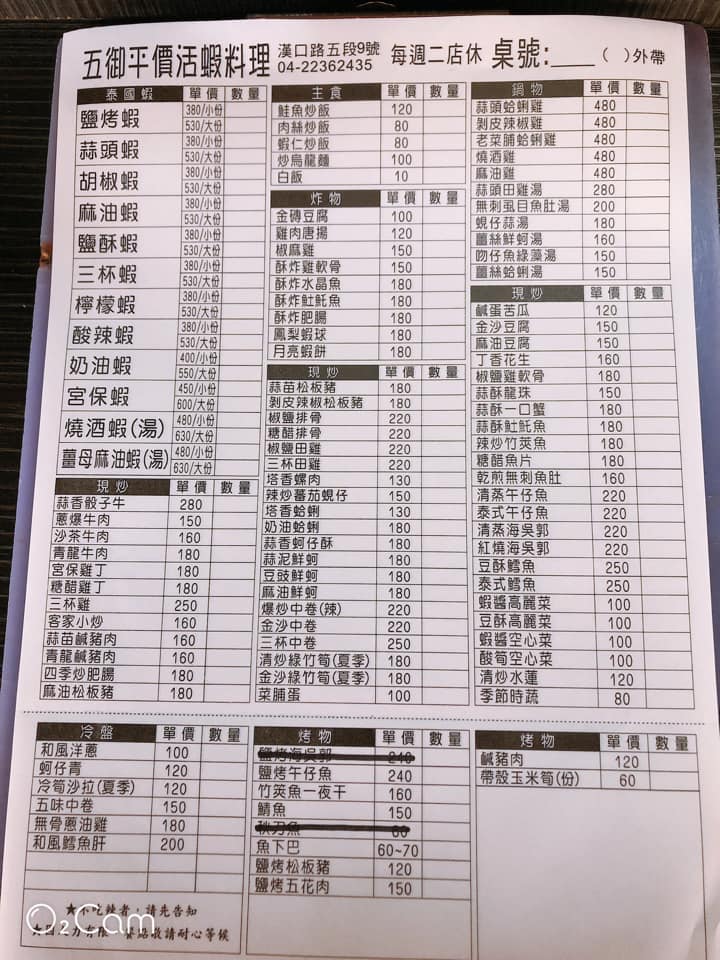 五御平價活蝦料理 漢口路五段9號 04-22362435 每週二店休 桌號:___ ( )外帶
泰國蝦 單價 數量
鹽烤蝦 380/小份 530/大份
蒜頭蝦 380/小份 530/大份
胡椒蝦 380/小份 530/大份
麻油蝦 380/小份 530/大份
鹽酥蝦 380/小份 530/大份
三杯蝦 380/小份 530/大份
檸檬蝦 380/小份 530/大份
酸辣蝦 380/小份 530/大份
奶油蝦 400/小份 550/大份
宮保蝦 450/小份 600/大份
燒酒蝦(湯) 480/小份 630/大份
薑母麻油蝦(湯) 480/小份 630/大份
現炒 單價 數量
蒜香骰子牛 280
蔥爆牛肉 150
沙茶牛肉 160
青龍牛肉 180
宮保雞丁 180
糖醋雞丁 180
三杯雞 250
客家小炒 160
蒜苗鹹豬肉 160
青龍鹹豬肉 160
四季炒肥腸 180
麻油松板豬 180
主食 單價 數量
鮭魚炒飯 120
肉絲炒飯 80
蝦仁炒飯 80
炒烏龍麵 100
白飯 10
炸物 單價 數量
金磚豆腐 100
雞肉唐揚 120
椒麻雞 150
酥炸雞軟骨 150
酥炸水晶魚 150
酥炸魠魠魚 180
酥炸肥腸 180
鳳梨蝦球 180
月亮蝦餅 180
現炒 單價 數量
蒜苗松板豬 180
剝皮辣椒松板豬 180
椒鹽排骨 220
糖醋排骨 220
椒鹽田雞 220
三杯田雞 220
塔香螺肉 130
辣炒蕃茄蜆仔 150
塔香蛤蜊 130
奶油蛤蜊 180
蒜香蚵仔酥 180
蒜泥鮮蚵 180
豆豉鮮蚵 180
麻油鮮蚵 180
爆炒中卷(辣) 220
金沙中卷 220
三杯中卷 250
清炒綠竹筍(夏季) 180
金沙綠竹筍(夏季) 180
菜脯蛋 100
鍋物 單價 數量
蒜頭蛤蜊雞 480
剝皮辣椒雞 480
老菜脯蛤蜊雞 480
燒酒雞 480
麻油雞 480
蒜頭田雞湯 280
無刺虱目魚肚湯 200
蜆仔蒜湯 180
薑絲鮮蚵湯 160
吻仔魚綠藻湯 150
薑絲蛤蜊湯 150
現炒 單價 數量
鹹蛋苦瓜 120
金沙豆腐 150
麻油豆腐 150
丁香花生 160
椒鹽雞軟骨 180
蒜酥龍珠 150
蒜酥一口蟹 180
蒜酥魠魠魚 180
辣炒竹筴魚 180
糖醋魚片 180
乾煎無刺魚肚 160
清蒸午仔魚 220
泰式午仔魚 220
清蒸海吳郭 220
紅燒海吳郭 220
豆酥鱈魚 250
泰式鱈魚 250
蝦醬高麗菜 100
豆酥高麗菜 100
蝦醬空心菜 100
酸筍空心菜 100
清炒水蓮 120
季節時蔬 80
冷盤 單價 數量
和風洋蔥 100
蚵仔青 120
冷筍沙拉(夏季) 120
五味中卷 150
無骨蔥油雞 180
和風鱈魚肝 200
★不吃辣者，請先告知
餐點敬請耐心等候
烤物 單價 數量
鹽烤海吳郭 240
鹽烤午仔魚 240
竹筴魚一夜干 160
鯖魚 150
秋刀魚 60
魚下巴 60~70
鹽烤松板豬 120
鹽烤五花肉 150
烤物 單價 數量
鹹豬肉 120
帶殼玉米筍(份) 60
O2Cam